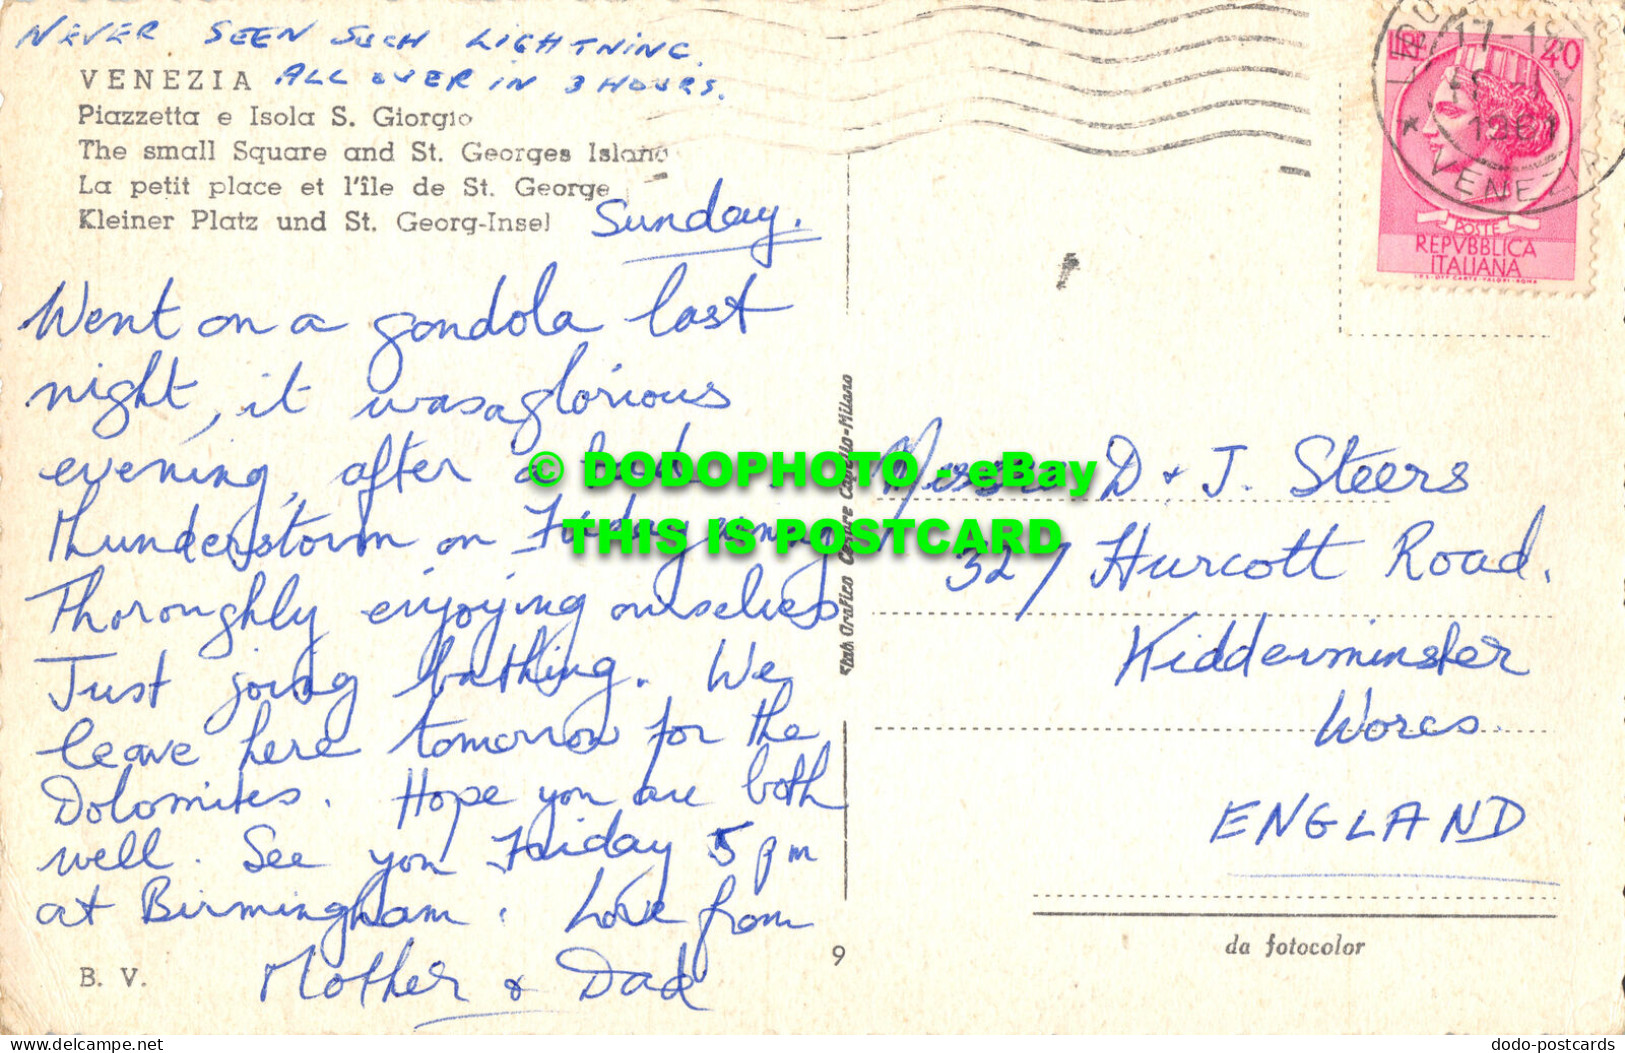 NEVER SEEN SUCH LIGHTNING.
ALL OVER IN 3 HOURS.
VENEZIA
Piazzetta e Isola S. Giorgio
The small Square and St. Georges Island
La petit place et l'île de St. George
Kleiner Platz und St. Georg-Insel
Sunday.
Went on a gondola last
night, it was a glorious
evening, after a bad
thunderstorm on Friday evening
Thoroughly enjoying ourselves
Just going bathing. We
leave here tomorrow for the
Dolomites. Hope you are both
well. See you Friday 5 pm
at Birmingham. Love from
Mother & Dad
B. V.
9
Stab Grafico Cesare Capello-Milano
LIRE 40
POSTE
REPVBBLICA
ITALIANA
I.P.S. OFF. CARTE-VALORI-ROMA
LIDO
17-18
1961
VENEZIA
Messrs D & J. Steers
327 Hurcott Road.
Kidderminster
Worcs.
ENGLAND
da fotocolor
© DODOPHOTO - eBay
THIS IS POSTCARD
dodo-postcards